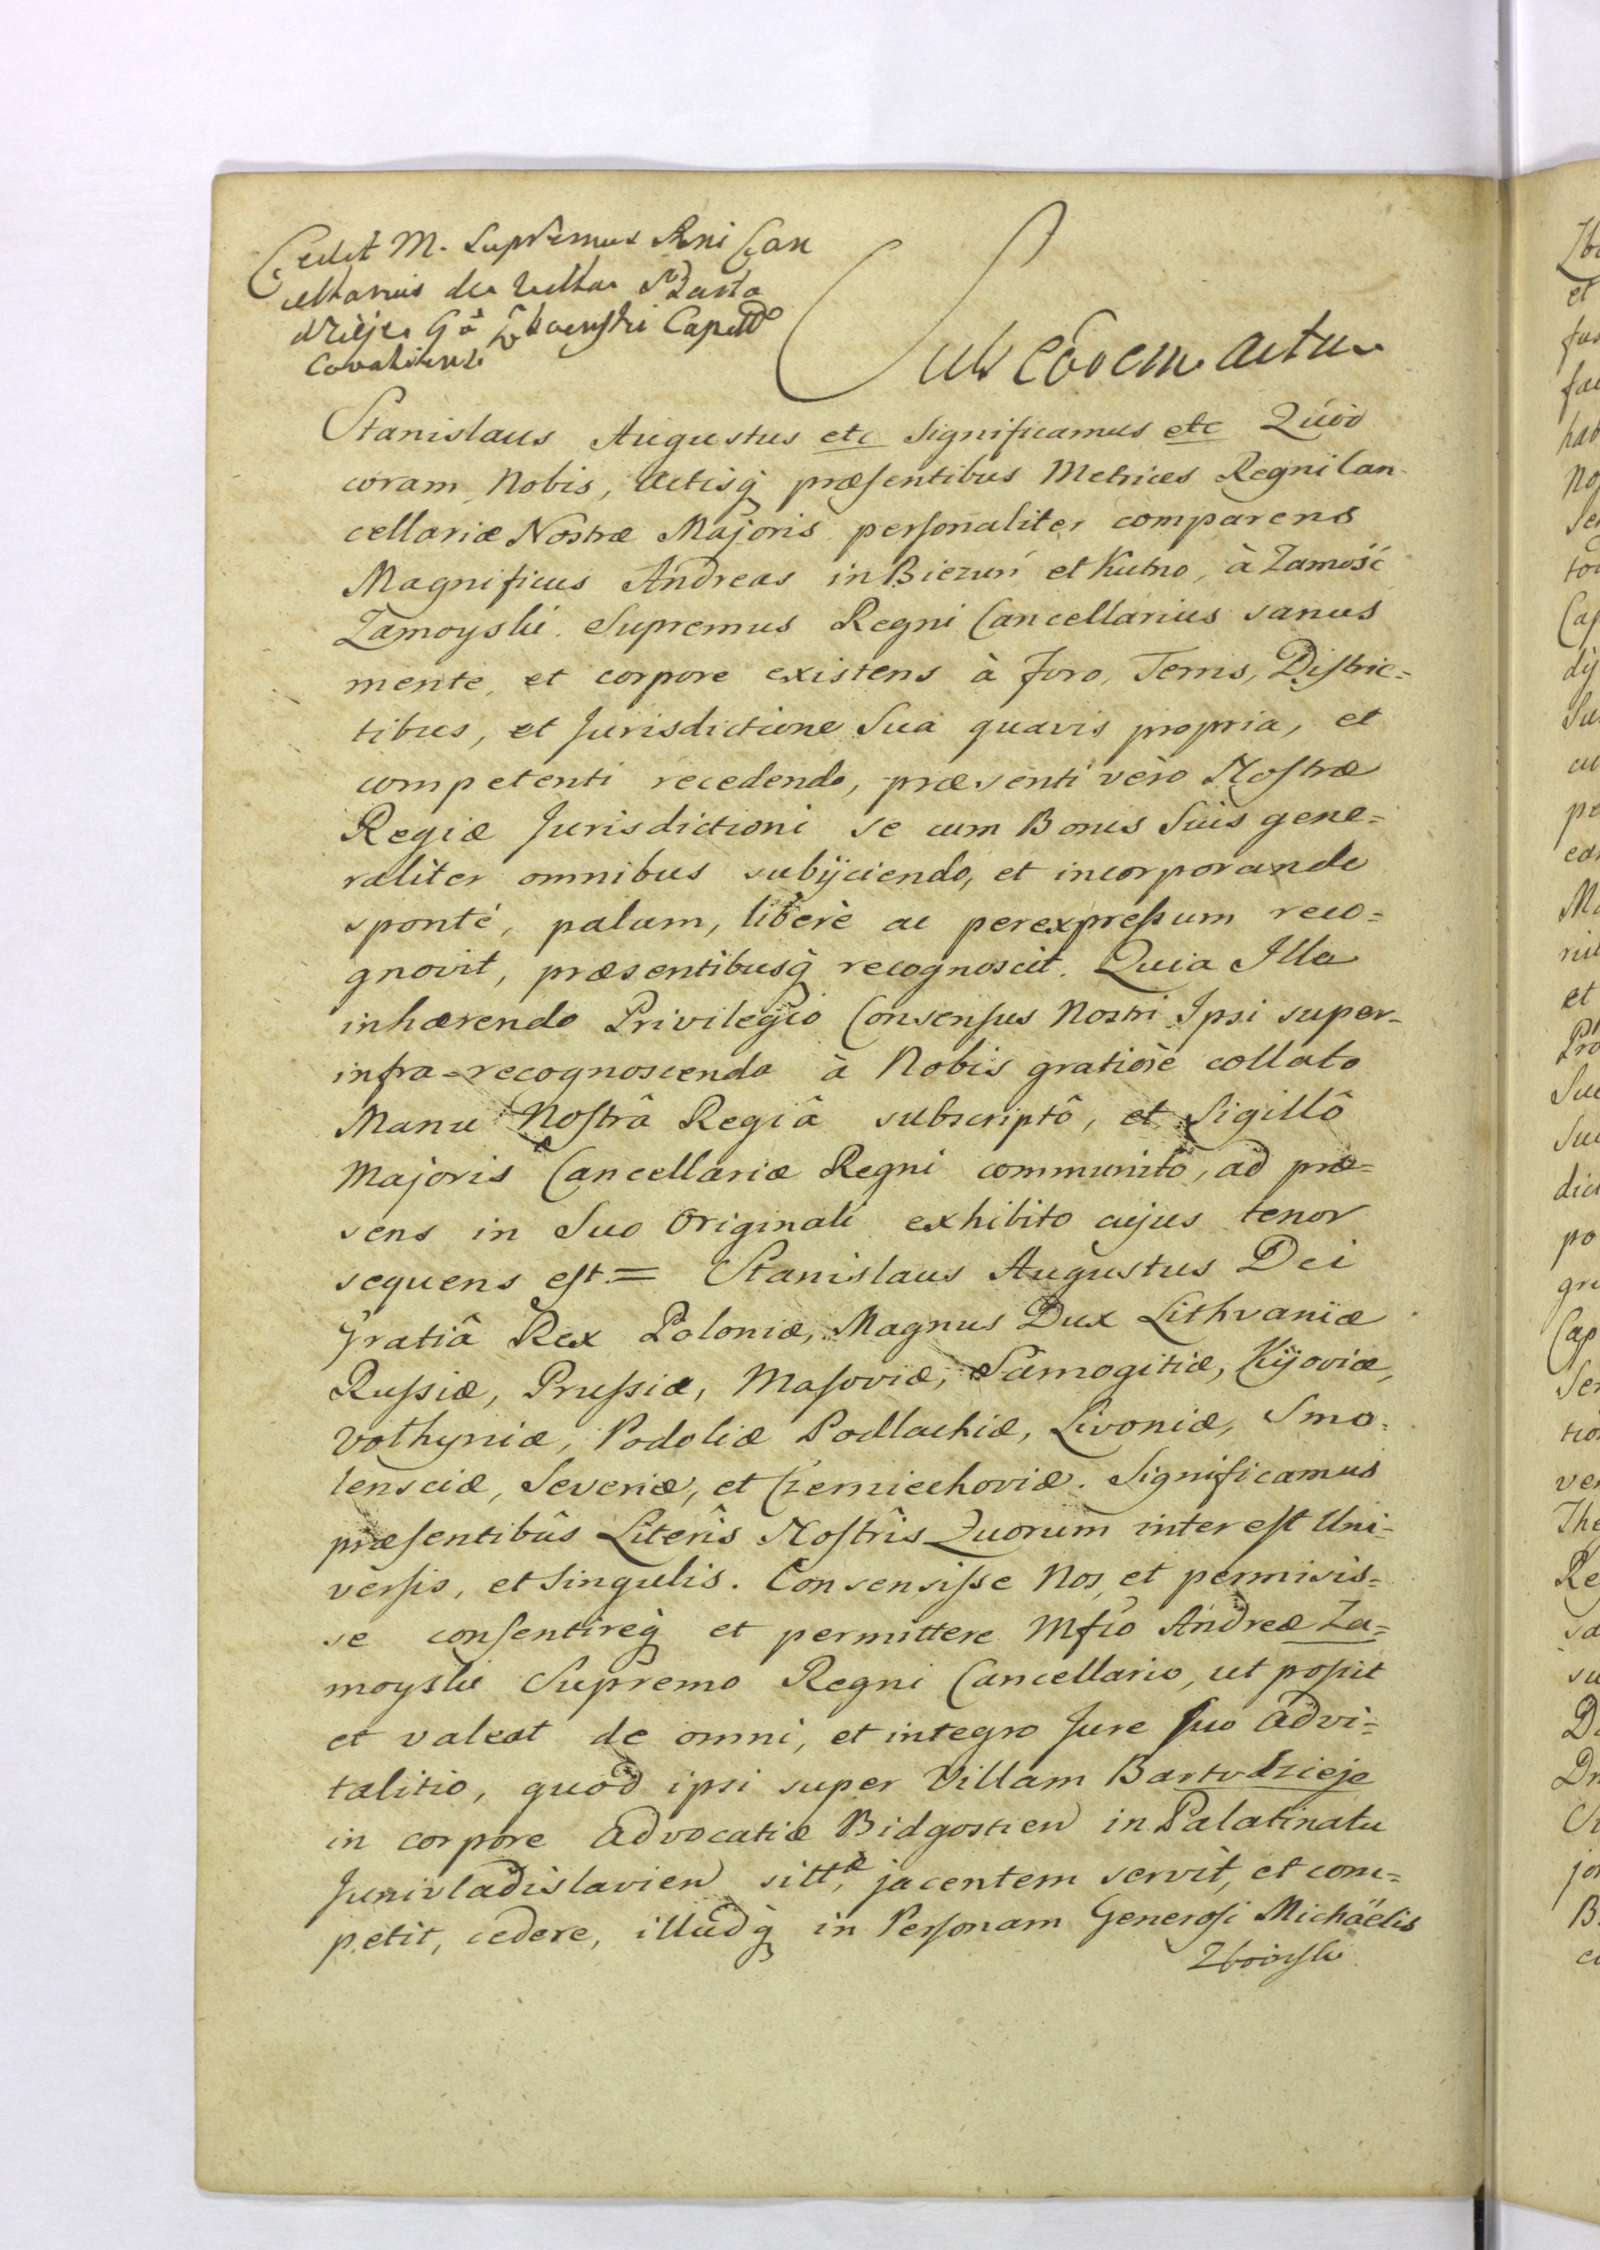 Cedit M. Supremus Rni Can
cellarius de Villa Barto
dzieje Gō Zboiński Capitō
Covaliensi
Sub eodem actu
Stanislaus Augustus etc Significamus etc Quod
coram Nobis, Actisq̢ præsentibus Metrices Regni Can-
cellariæ Nostræ Majoris personaliter comparens
Magnificus Andreas in Biezuń et Kutno, à Zamość
Zamoyski Supremus Regni Cancellarius sanus
mente, et corpore existens à Foro, Terris, Distric=
tibus, et Jurisdictione Sua quavis propria, et
competenti recedendo, præsenti vèro Nostræ
Regiæ Jurisdictioni se cum Bonis Suis gene=
raliter omnibus subijciendo, et incorporando
spontè, palam, liberè ac per expressum reco=
gnovit, præsentibusq̢ recognoscit. Quia Ille
inhærendo Privilegio Consensus Nostri Ipsi super
infra-recognoscenda à Nobis gratiosè collato
Manu Nostrâ Regiâ subscriptô, et Sigillô
Majoris Cancellariæ Regni communitô, ad præ=
sens in Suo Originali exhibito cujus tenor
sequens est = Stanislaus Augustus Dei
Gratiâ Rex Poloniæ, Magnus Dux Lithvaniæ
Russiæ, Prussiæ, Masoviæ, Samogitiæ, Kijoviæ,
Volhyniæ, Podoliæ Podlachiæ, Livoniæ, Smo=
lensciæ, Severiæ, et Czerniechoviæ. Significamus
præsentibûs Literîs Nostrîs Quorum interest Uni=
versis, et Singulis. Consensisse Nos, et permisis=
se consentireq̢ et permittere Mfco Andreæ Za=
moyski Supremo Regni Cancellario, ut possit
et valeat de omni, et integro Jure suo advi=
talitio, quod ipsi super Villam Bartodzieje
in corpore Advocatiæ Bidgostien in Palatinatu
Junivladislavien sittē, jacentem servit, et com=
petit, cedere, illudq̢ in Personam Generosi Michäelis
Zboiński